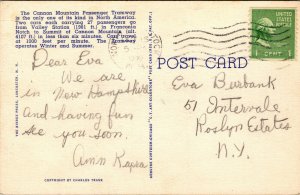 The Cannon Mountain Passenger Tramway
is the only one of its kind in North America.
Two cars each carrying 27 passengers go
from Valley Station (1981 ft.) in Franconia
Notch to Summit of Cannon Mountain (alt.
4107 ft.) in less than six minutes. Cars travel
at 1000 feet per minute. The Tramway
operates Winter and Summer.
Dear Eva
We are
in New Hampshire
and having fun
See you soon.
Ann Kapra
COPYRIGHT BY CHARLES TRASK
POST CARD
1 CENT 1
Eva Burbank
51 Intervale
Roslyn Estates
N.Y.